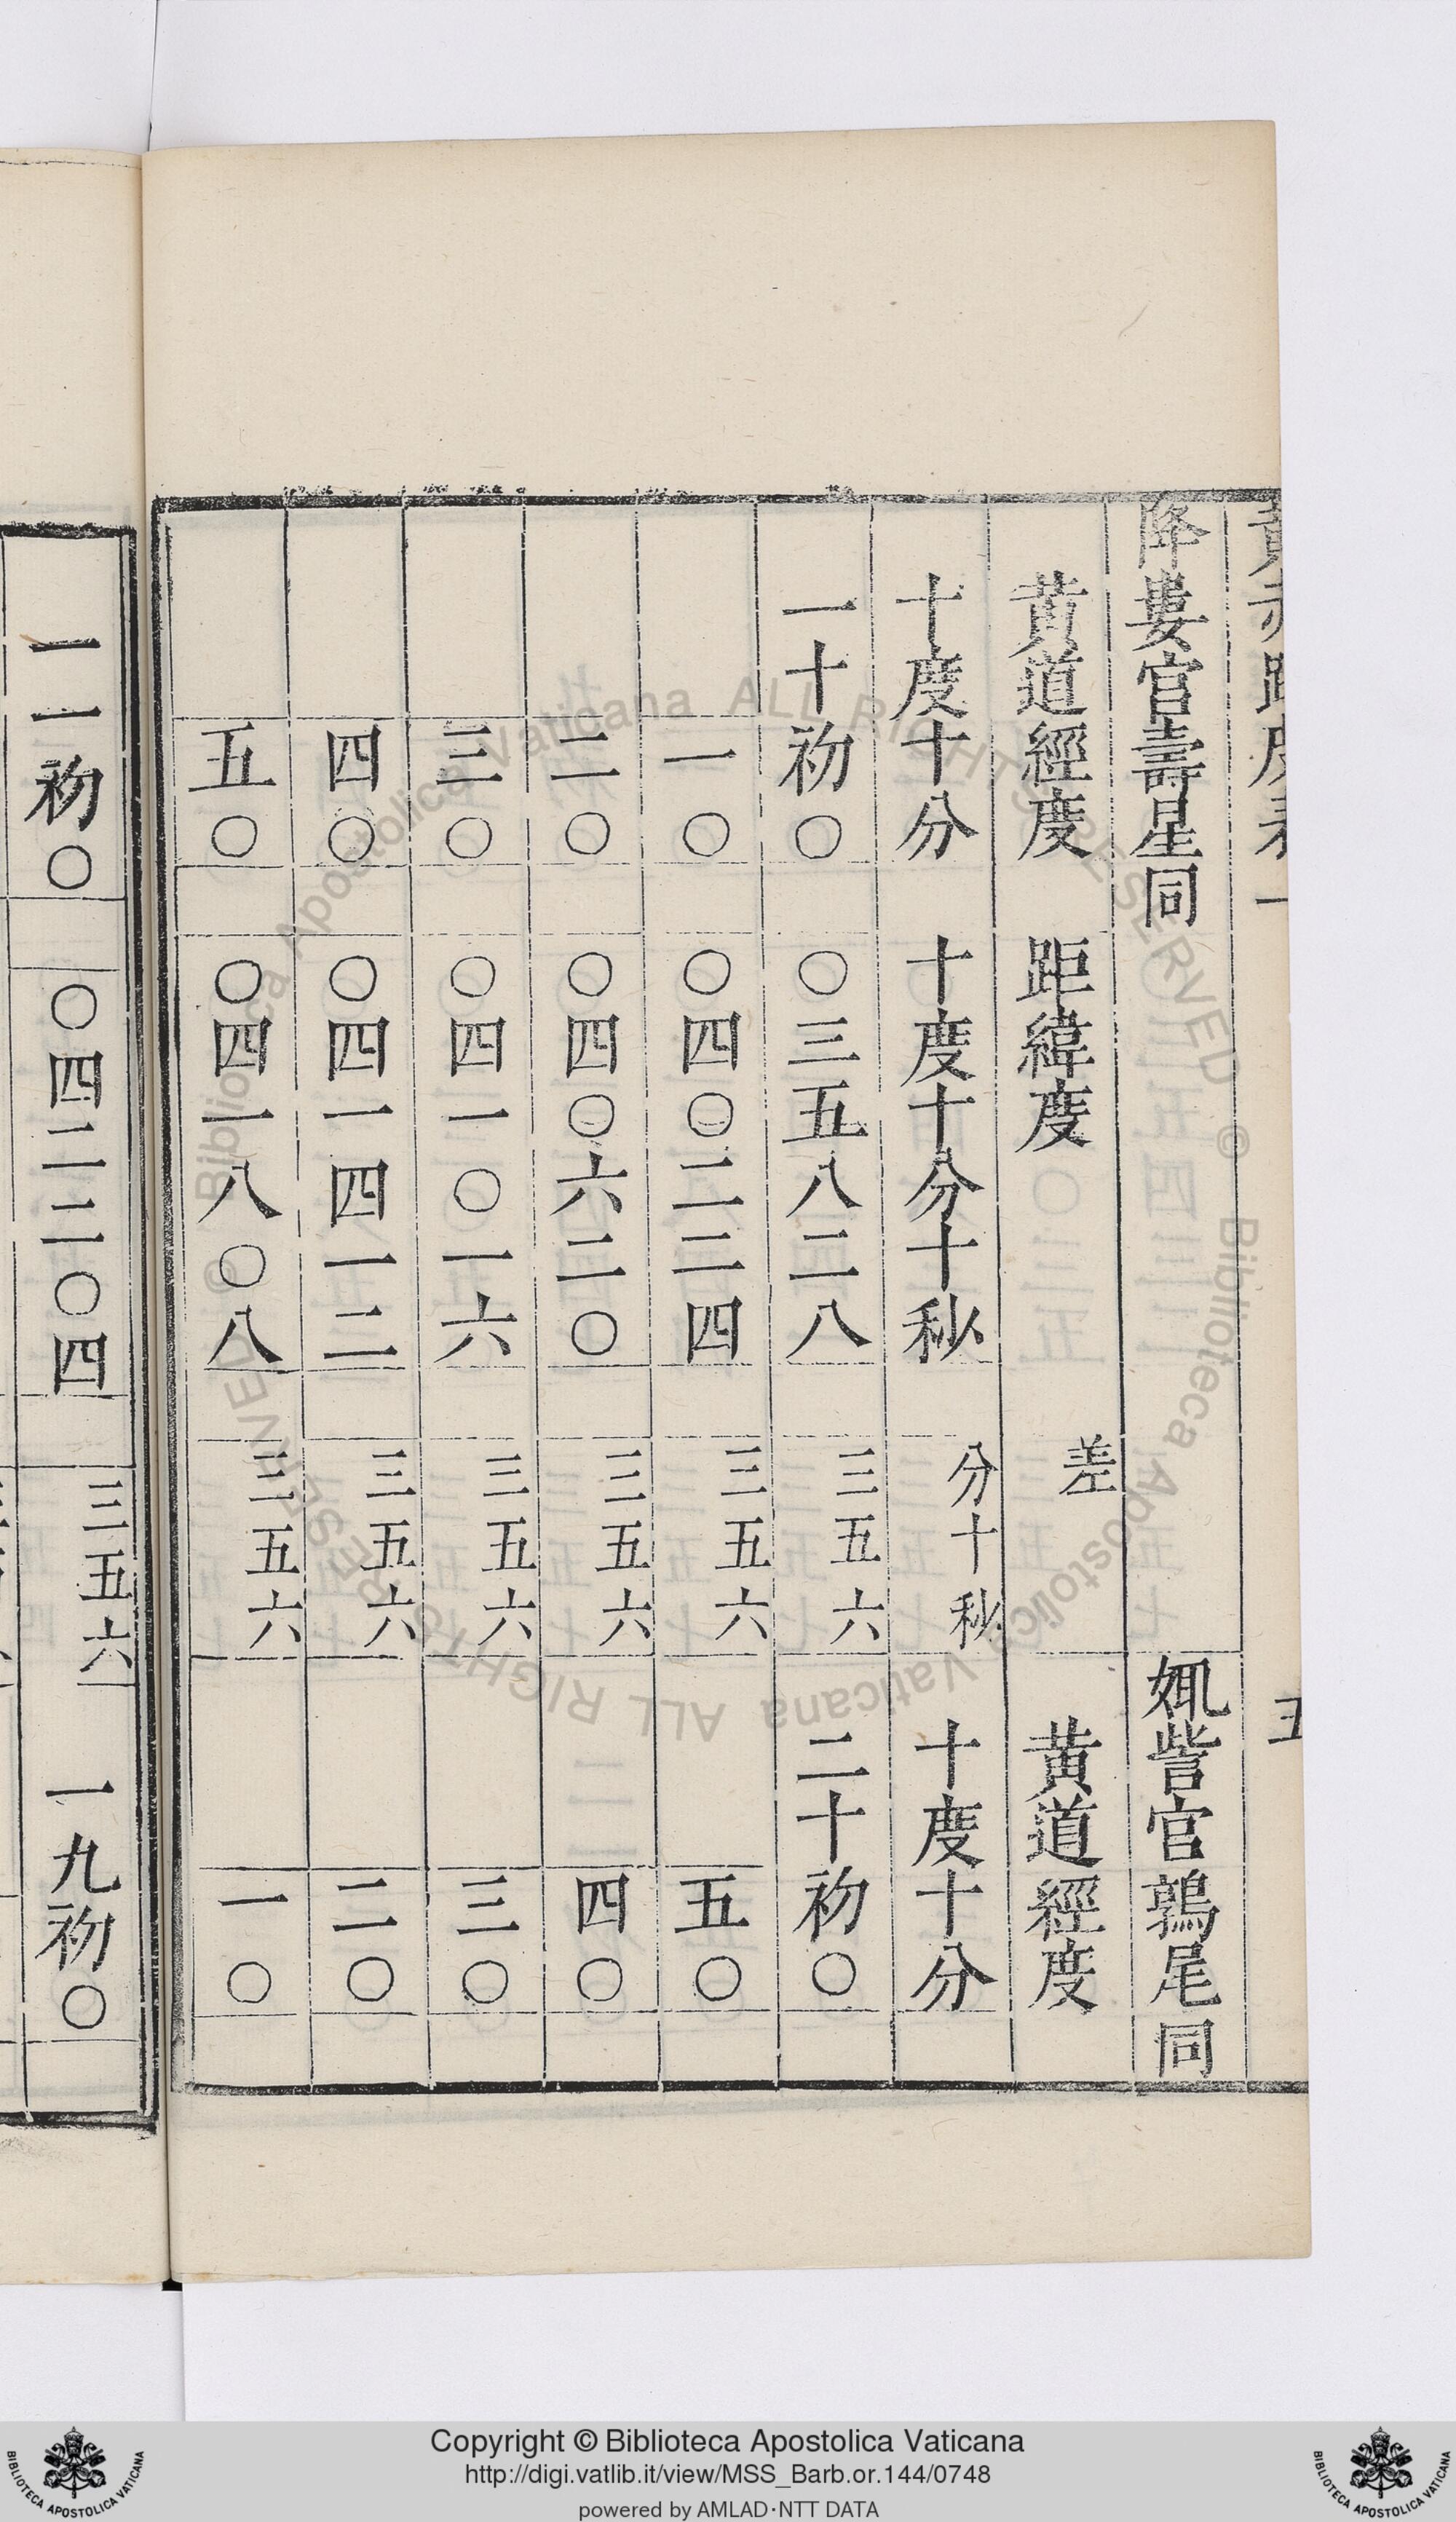 黃赤距度表一 五
降婁宮壽星同 娵訾宮鶉尾同
黃道經度 距緯度 差 黃道經度
十度十分 十度十分十秒 分十秒 十度十分
一十初〇 〇三五八二八 三五六 二十初〇
一〇 〇四〇二二四 三五六 五〇
二〇 〇四〇六二〇 三五六 四〇
三〇 〇四一〇一六 三五六 三〇
四〇 〇四一四一二 三五六 二〇
五〇 〇四一八〇八 三五六 一〇
一一初〇 〇四二二〇四 三五六 一九初〇
Copyright © Biblioteca Apostolica Vaticana
http://digi.vatlib.it/view/MSS_Barb.or.144/0748
powered by AMLAD·NTT DATA
BIBLIOTECA APOSTOLICA VATICANA
BIBLIOTECA APOSTOLICA VATICANA
© Biblioteca Apostolica Vaticana ALL RIGHTS RESERVED
© Biblioteca Apostolica Vaticana ALL RIGHTS RESERVED